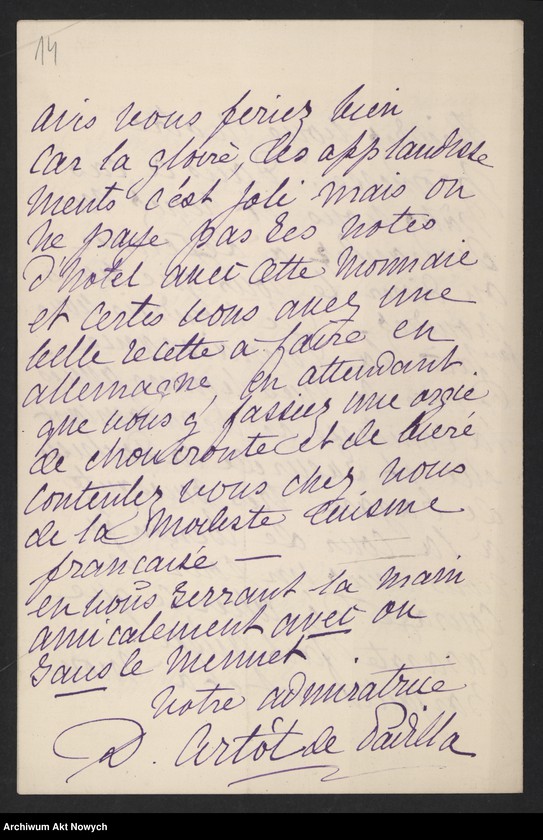 14
avis vous feriez bien
car la gloire, les applaudisse
ments c'est joli mais on
ne paye pas ses notes
d'hotel avec cette monnaie
et certes vous avez une
belle recette a faire en
allemagne, en attendant
que vous y fassiez une orgie
de choucroute et de biere
contentez vous chez nous
de la modeste cuisine
francaise —
en vous serrant la main
amicalement avec ou
sans le menuet
votre admiratrice
D. Artôt de Padilla
Archiwum Akt Nowych